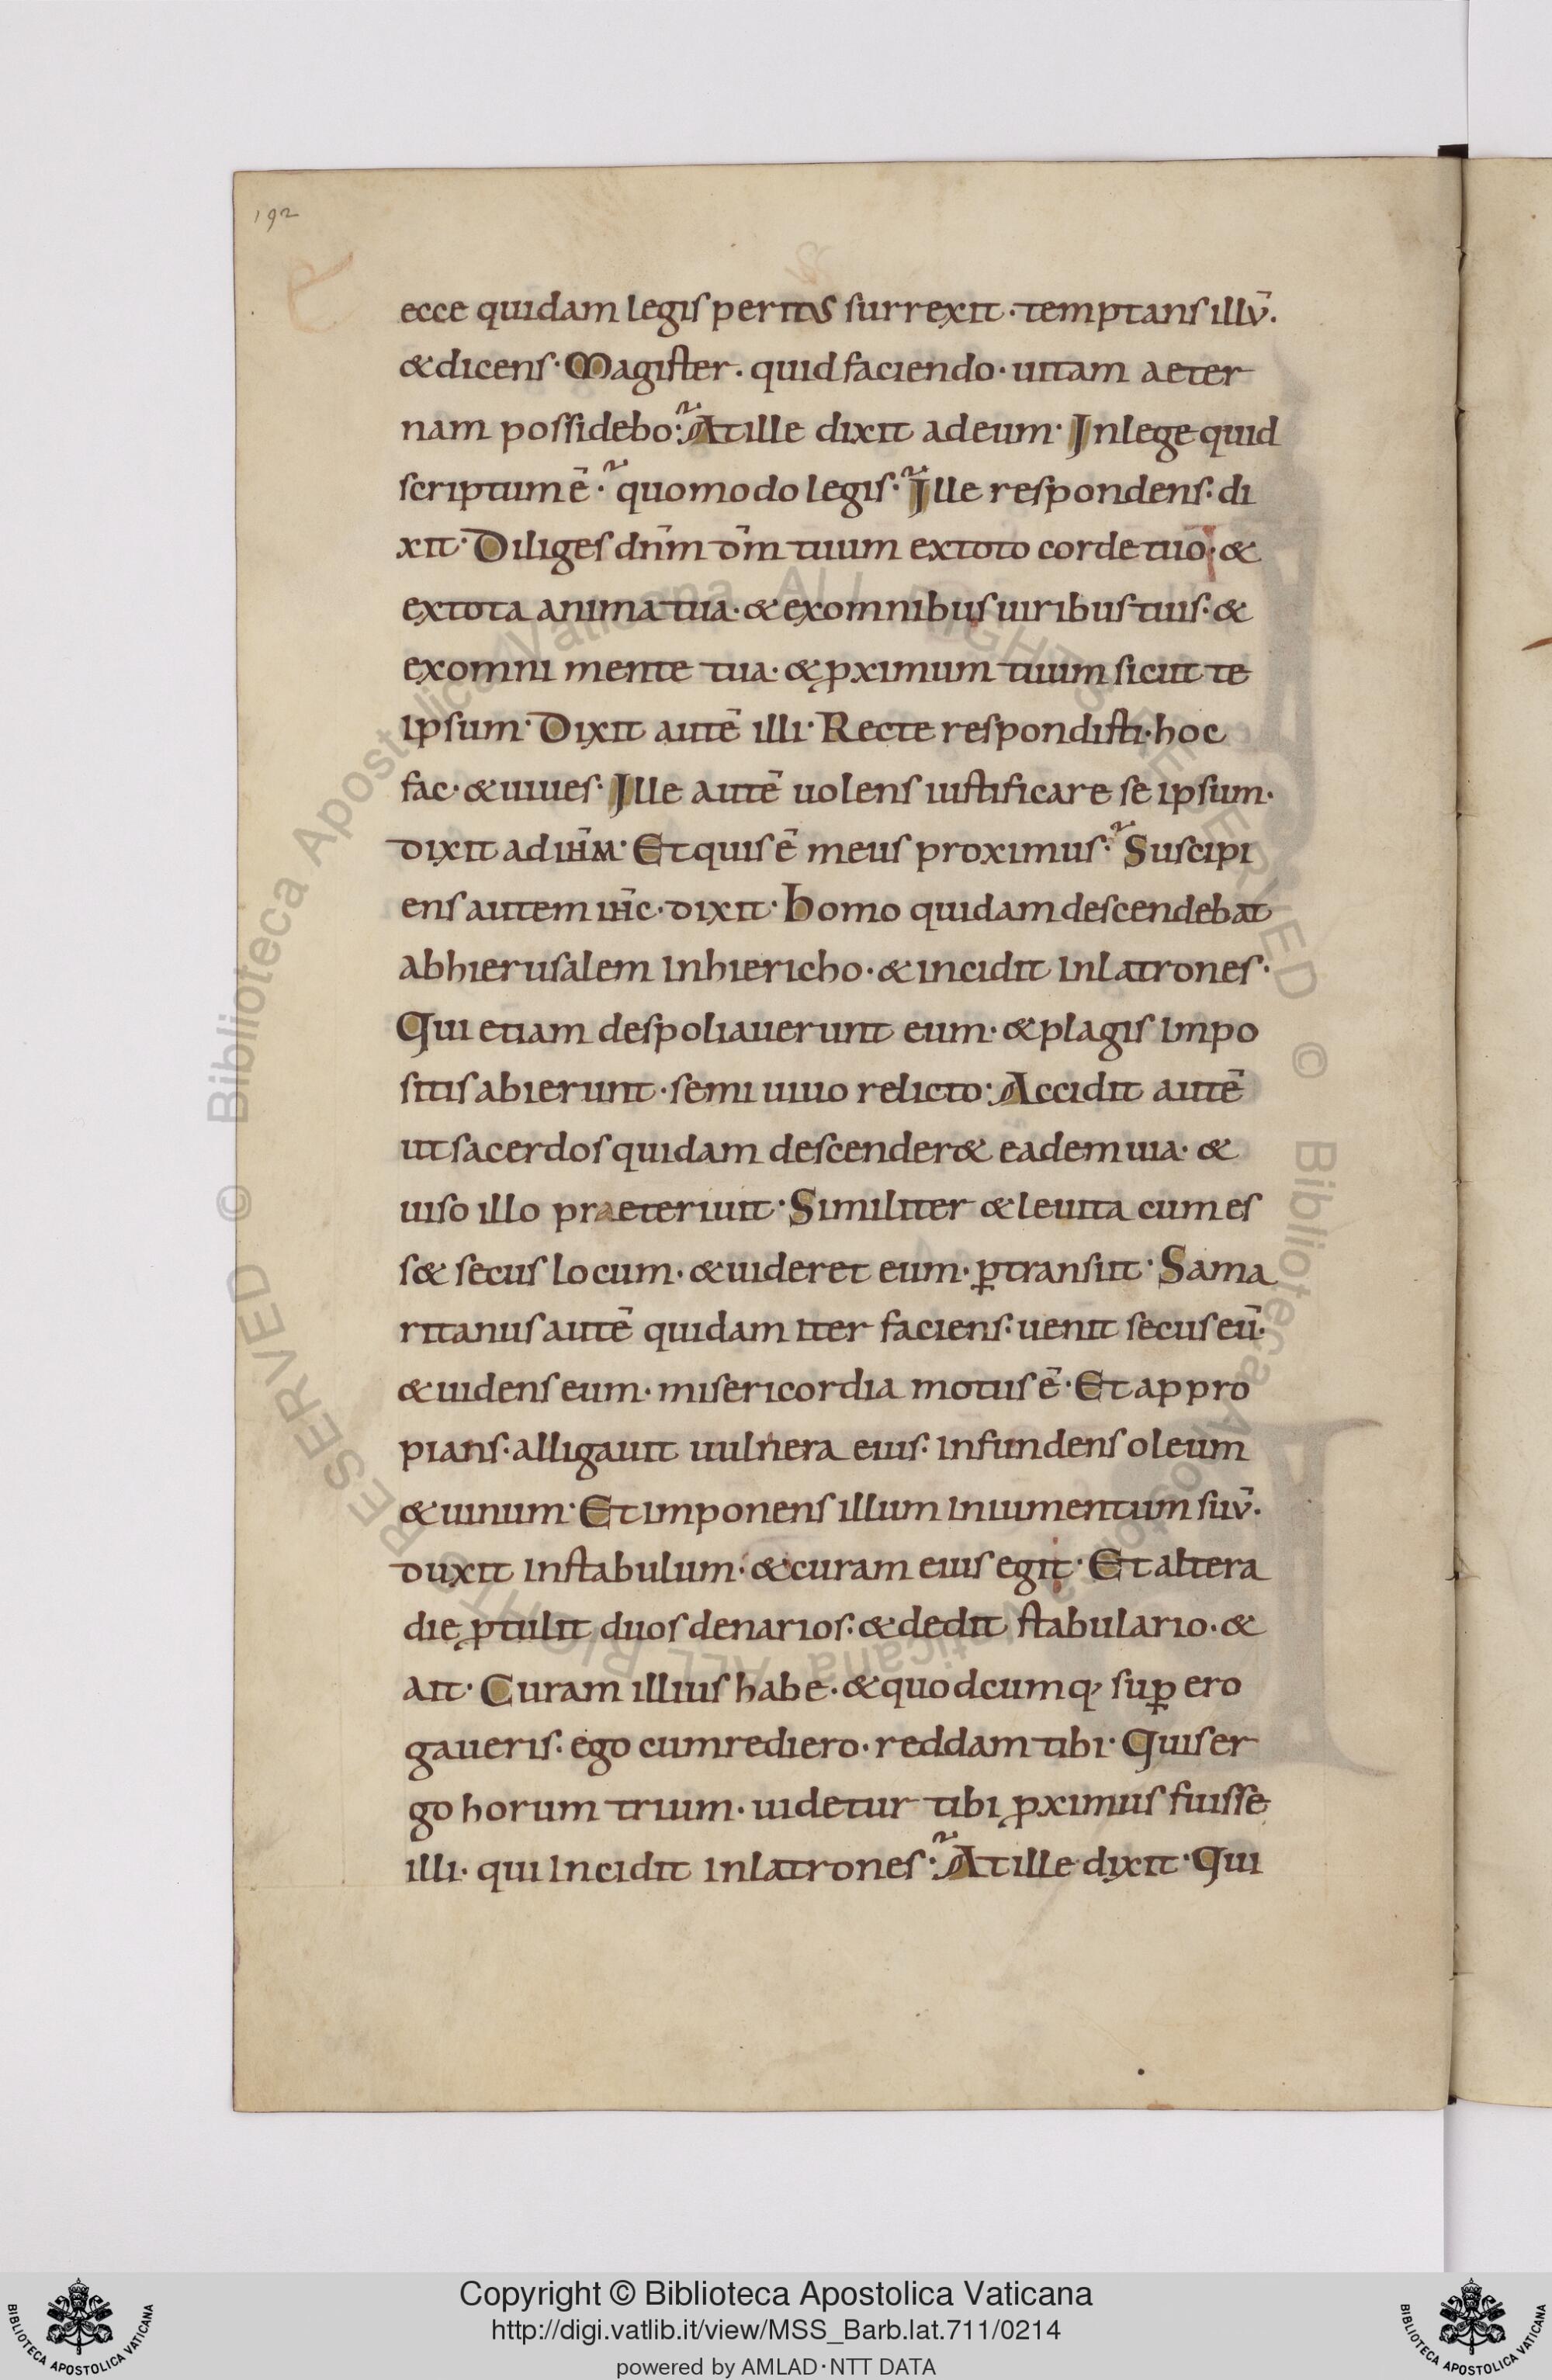 192
ecce quidam legis peritus surrexit · temptans illū ·
& dicens · Magister · quid faciendo · uitam aeter
nam possidebo : At ille dixit ad eum · In lege quid
scriptum ē · quomodo legis · Ille respondens · di
xit · Diliges dn̄m dm̄ tuum ex toto corde tuo · &
ex tota anima tua · & ex omnibus uiribus tuis · &
ex omni mente tua · & ꝓximum tuum sicut te
ipsum · Dixit autē illi · Recte respondisti · hoc
fac · & uiues · Ille autē uolens iustificare se ipsum ·
dixit ad ihm̄ · Et quis ē meus proximus · Suscipi
ens autem ihc̄ · dixit · Homo quidam descendebat
ab hierusalem in hiericho · & incidit in latrones ·
Qui etiam despoliauerunt eum · & plagis impo
sitis abierunt · semi uiuo relicto : Accidit autē
ut sacerdos quidam descender& eadem uia · &
uiso illo praeteriuit · Similiter & leuita cum es
s& secus locum · & uideret eum · ꝑtransiit · Sama
ritanus autē quidam iter faciens : uenit secus eū ·
& uidens eum · misericordia motus ē · Et appro
pians · alligauit uulnera eius : infundens oleum
& uinum · Et imponens illum in iumentum suū ·
duxit in stabulum · & curam eius egit · Et altera
die ꝓtulit duos denarios : & dedit stabulario · &
ait · Curam illius habe · & quodcumq; suꝑ ero
gaueris : ego cum rediero · reddam tibi · Quis er
go horum trium · uidetur tibi ꝓximus fuisse
illi · qui incidit in latrones · At ille dixit · Qui
© Biblioteca Apostolica Vaticana ALL RIGHTS RESERVED © Biblioteca Apostolica Vaticana ALL RIGHTS RESERVED
Copyright © Biblioteca Apostolica Vaticana
http://digi.vatlib.it/view/MSS_Barb.lat.711/0214
powered by AMLAD·NTT DATA
BIBLIOTECA APOSTOLICA VATICANA
BIBLIOTECA APOSTOLICA VATICANA